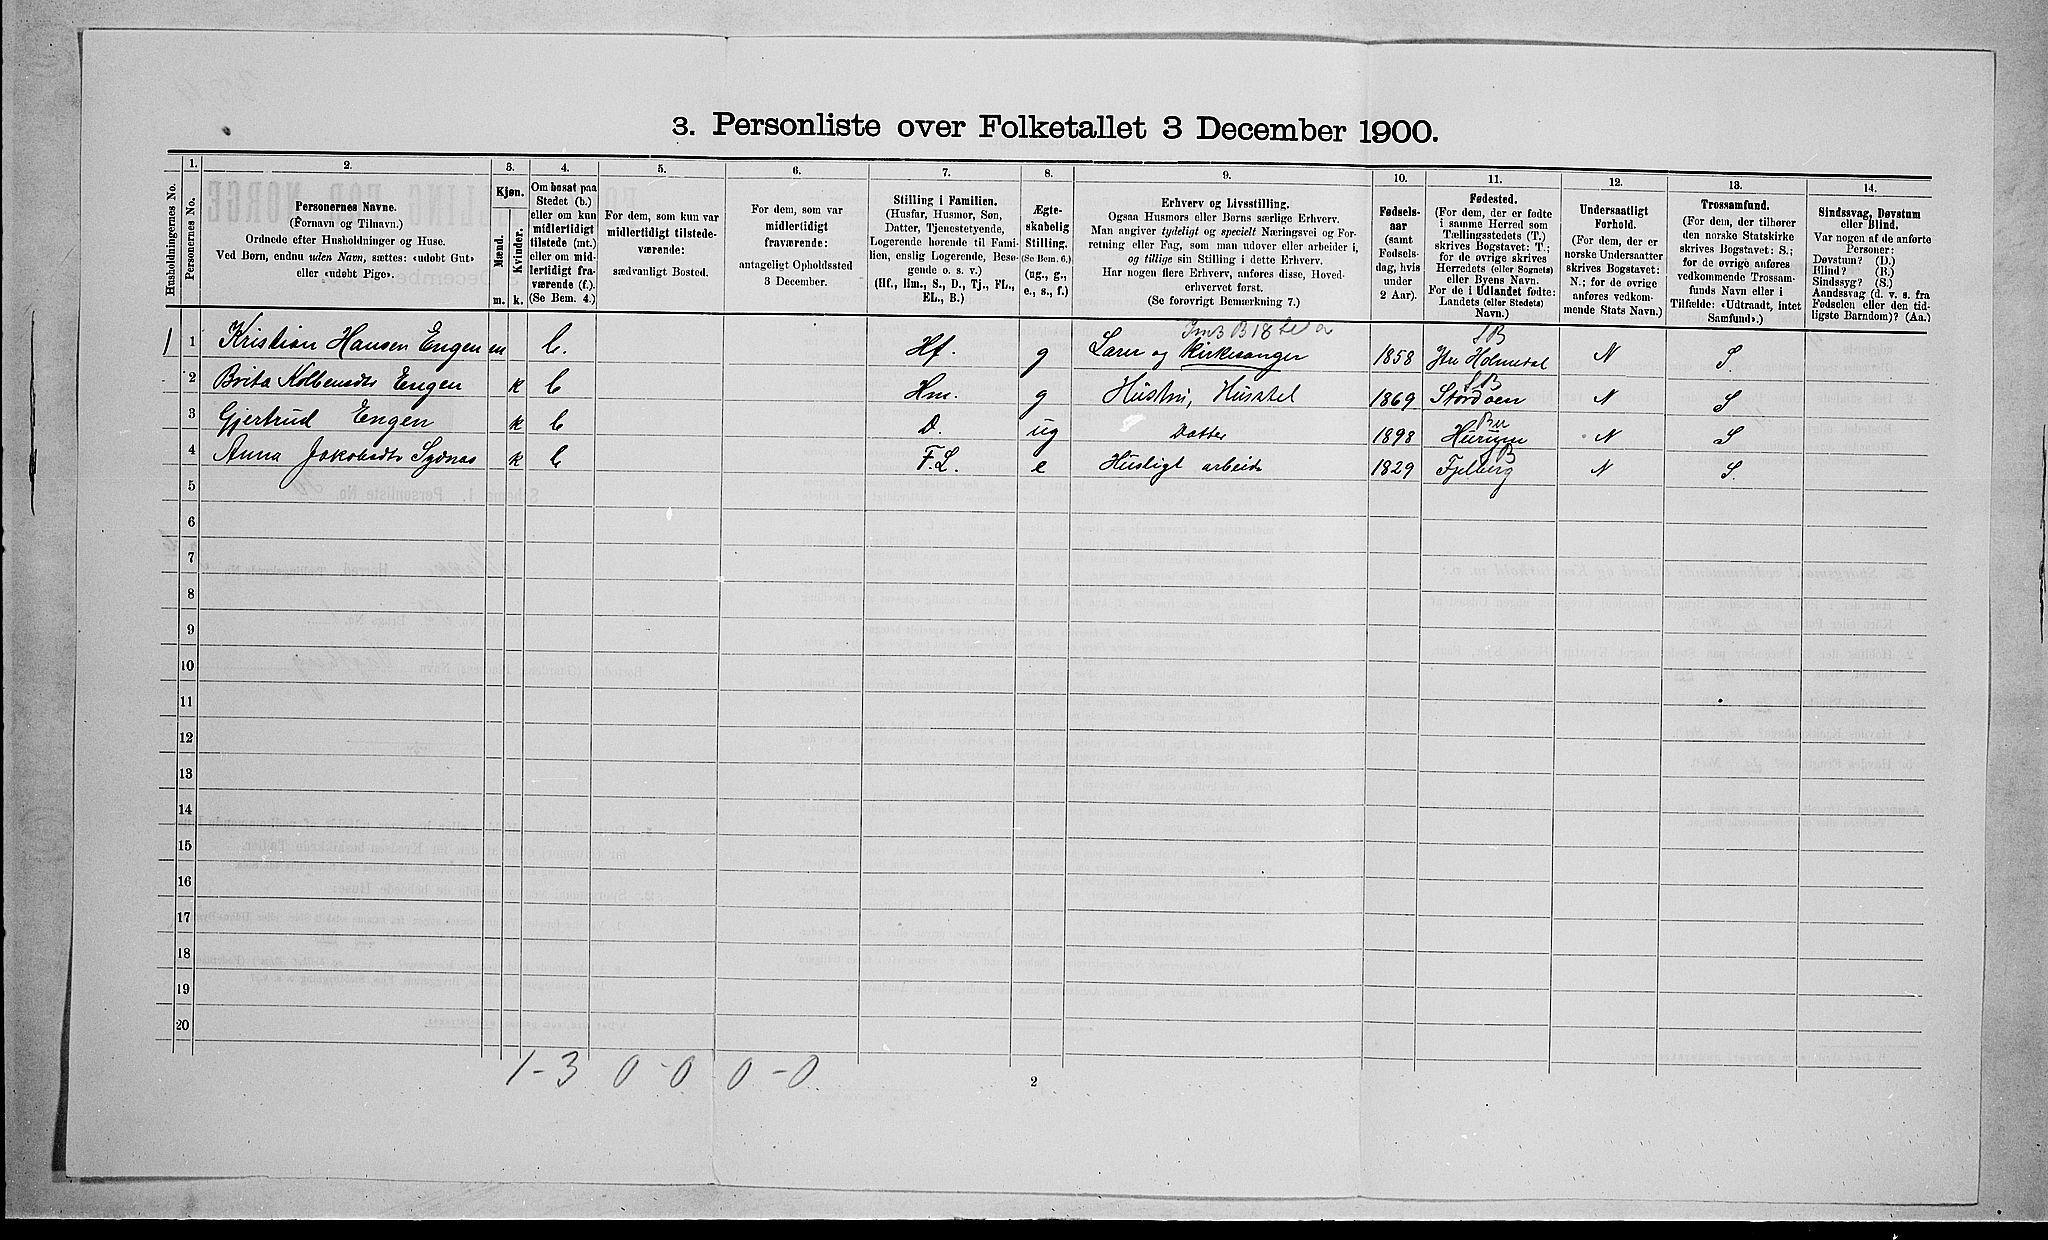 3. Personliste over Folketallet 3 December 1900.
Husholdningernes No.
1.
Personernes No.
2.
Personernes Navne.
(Fornavn og Tilnavn.)
Ordnede efter Husholdninger og Huse.
Ved Børn, endnu uden Navn, sættes: «udøbt Gut»
eller «udøbt Pige».
3.
Kjøn.
Mænd.
Kvinder.
m. k.
4.
Om bosat paa
Stedet (b.)
eller om kun
midlertidigt
tilstede (mt.)
eller om mid-
lertidigt fra-
værende (f.).
(Se Bem. 4.)
5.
For dem, som kun var
midlertidigt tilstede-
værende:
sædvanligt Bosted.
6.
For dem, som var
midlertidigt
fraværende:
antageligt Opholdssted
3 December.
7.
Stilling i Familien.
(Husfar, Husmor, Søn,
Datter, Tjenestetyende,
Logerende hørende til Fami-
lien, enslig Logerende, Besø-
gende o. s. v.)
(Hf., Hm., S., D., Tj., FL.,
EL., B.)
8.
Ægte-
skabelig
Stilling.
(Se Bem. 6.)
(ug., g.,
e., s., f.)
9.
Erhverv og Livsstilling.
Ogsaa Husmors eller Børns særlige Erhverv.
Man angiver tydeligt og specielt Næringsvei og For-
retning eller Fag, som man udøver eller arbeider i,
og tillige sin Stilling i dette Erhverv.
Har nogen flere Erhverv, anføres disse, Hoved-
erhvervet først.
(Se forøvrigt Bemærkning 7.)
10.
Fødsels-
aar
(samt
Fødsels-
dag, hvis
under
2 Aar).
11.
Fødested.
(For dem, der er fødte
i samme Herred som
Tællingsstedets (T.)
skrives Bogstavet: T.;
for de øvrige skrives
Herredets (eller Sognets)
eller Byens Navn.
For de i Udlandet fødte:
Landets (eller Stedets)
Navn.)
12.
Undersaatligt
Forhold.
(For dem, der er
norske Undersaatter
skrives Bogstavet:
N.; for de øvrige
anføres vedkom-
mende Stats Navn.)
13.
Trossamfund.
(For dem, der tilhører
den norske Statskirke
skrives Bogstavet: S.;
for de øvrige anføres
vedkommende Trossam-
funds Navn eller i
Tilfælde: «Udtraadt, intet
Samfund».)
14.
Sindssvag, Døvstum
eller Blind.
Var nogen af de anførte
Personer:
Døvstum? (D.)
Blind? (B.)
Sindssyg? (S.)
Aandssvag (d. v. s. fra
Fødselen eller den tid-
ligste Barndom)? (Aa.)
SB
1 1 Kristian Hansen Engen m b. Hf. g Lærer og Kirkesanger 1858 Ytre Holmedal N S.
SB
2 Brita Kolbensdtr Engen k b Hm. g Hustru, Husstel 1869 Stordøen N S
Bu
3 Gjertrud Engen k b D. ug Datter 1898 Hurum N S
SB
4 Anna Jakobsdtr Sydnæs k b F.L. e Husligt arbeide 1829 Fjelberg N S.
5
6
7
8
9
10
11
12
13
14
15
16
17
18
19
20
1-3 0-0 0-0.
2